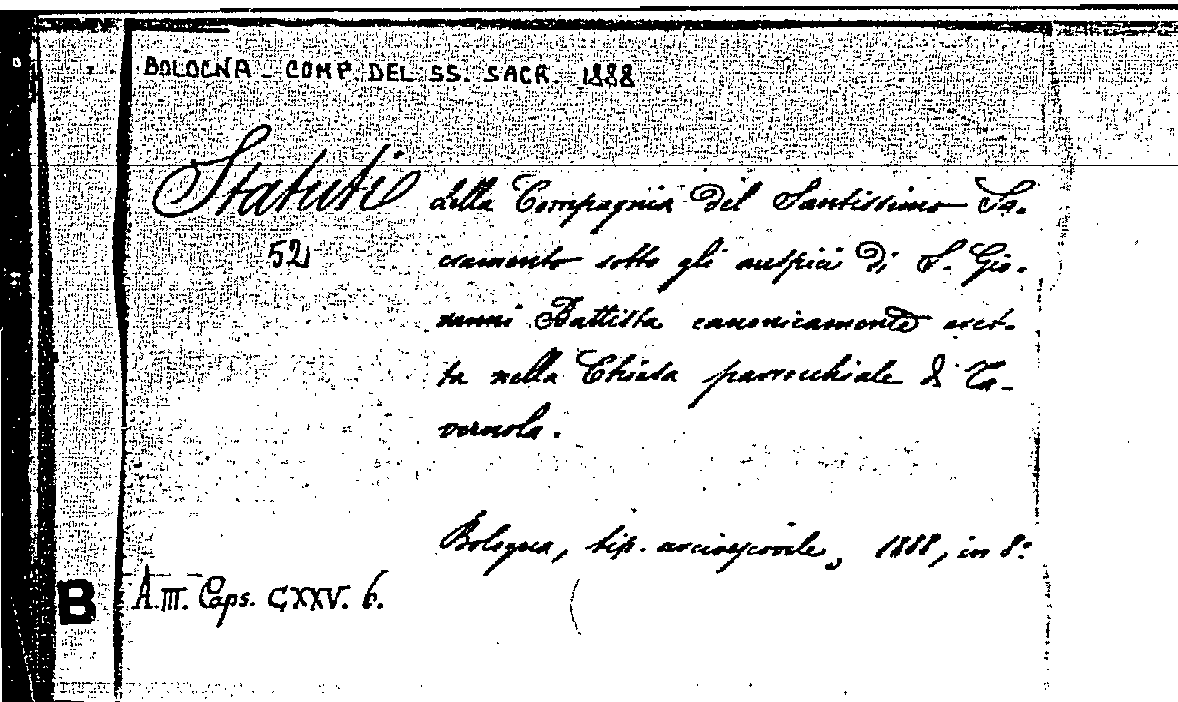 BOLOGNA - COMP. DEL SS. SACR. 1888
Statuti della Compagnia del Santissimo Sa-
52
cramento sotto gli auspici di S. Gio-
vanni Battista canonicamente eret-
ta nella Chiesa parrocchiale di Ta-
vernola.
Bologna, tip. arcivescovile, 1888, in 8°
B
A.III. Caps. CXXV. 6.